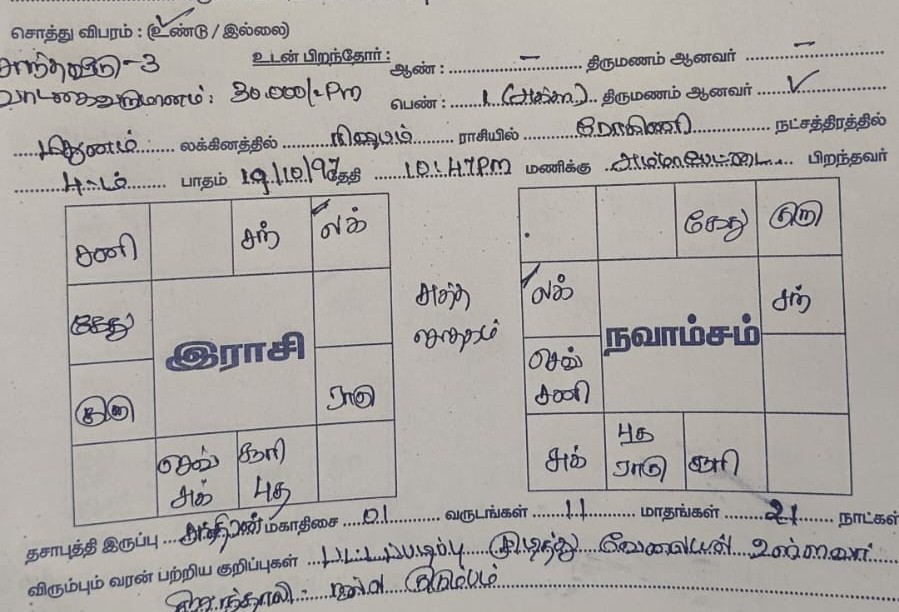 சொத்து விபரம் : (உண்டு / இல்லை)
சொந்தவீடு - 3 உடன் பிறந்தோர் : ஆண் : – திருமணம் ஆனவர் –
வாடகைவருமானம் : 30.000/- Pm பெண் : 1 (அக்கா) திருமணம் ஆனவர் ✓
மிதுனம் லக்கினத்தில் ரிஷபம் ராசியில் ரோகிணி நட்சத்திரத்தில்
4-ம் பாதம் 19/10/97 தேதி 10:47 PM மணிக்கு அம்மாபேட்டை பிறந்தவர்
சனி சந் லக்
கேது
இராசி
குரு ராகு
செவ் சூரி
சுக் புத
சுத்த
ஜாதகம்
கேது குரு
லக் சந்
நவாம்சம்
செவ்
சனி
சுக் புத ராகு சூரி
தசாபுத்தி இருப்பு சந்திரன் மகாதிசை 01 வருடங்கள் 11 மாதங்கள் 21 நாட்கள்
விரும்பும் வரன் பற்றிய குறிப்புகள் பட்டப்படிப்பு முடித்து வேலையில் உள்ளவர்
நல்ல குடும்பம்